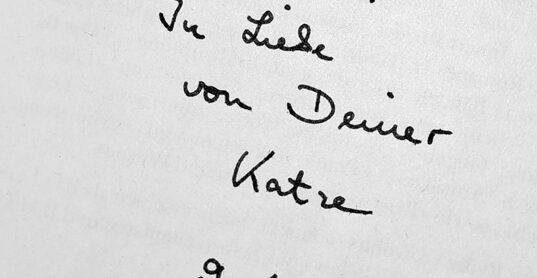 In Liebe
von Deiner
Katze